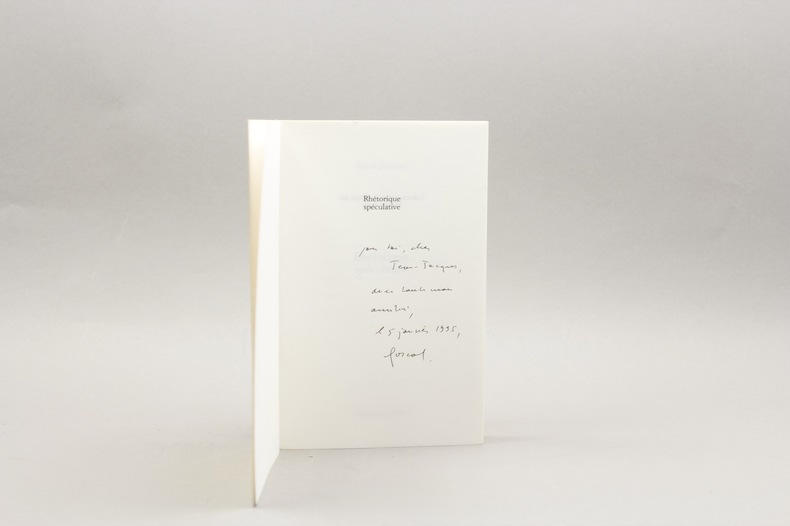 Rhétorique
spéculative
pour toi, cher
Jean-Jacques,
avec toute mon
amitié,
le 5 janvier 1995,
Pascal.